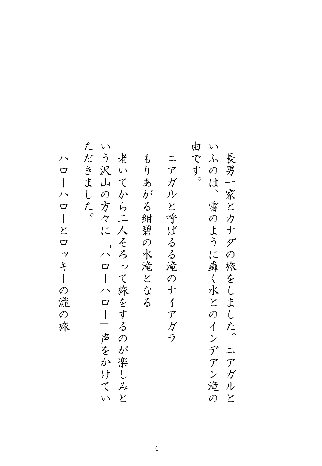 長男一家とカナダの旅をしました。ニアガルと
いふのは、雷のように轟く水とのインデアン達の
由です。
ニアガルと呼ばるる滝のナイアガラ
もりあがる紺碧の水滝となる
老いてから二人そろって旅をするのが楽しみと
いう沢山の方々に「ハローハロー」声をかけてい
ただきました。
ハローハローとロッキーの麓の旅